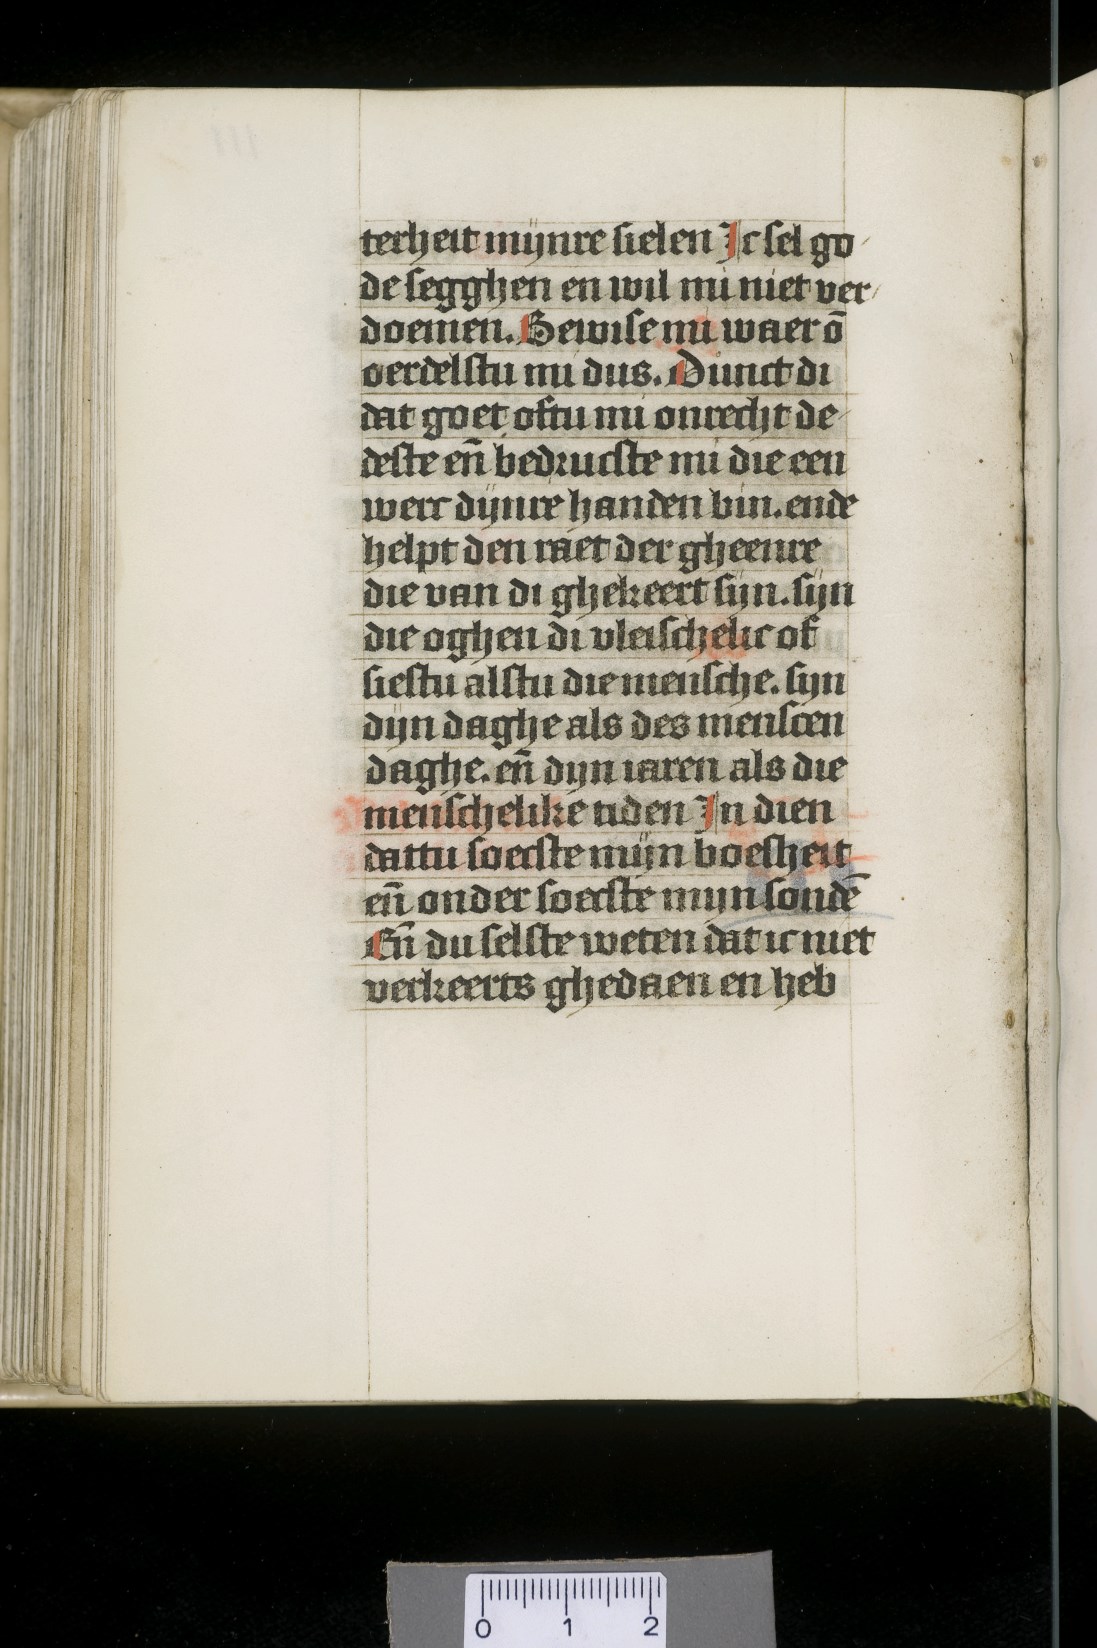 terheit mijnre sielen Ic sel go
de segghen en wil mi niet ver
doemen. Bewise mi waer ō
oerdelstu mi dus. Dunct di
dat goet oftu mi onrecht de
deste en̄ bedrucste mi die een
werc dijnre handen bin. ende
helpt den raet der gheenre
die van di ghekeert sijn. sijn
die oghen di vleischelic of
siestu alstu die mensche. sijn
dijn daghe als des menscen
daghe. en̄ dijn iaren als die
menschelike tiden In dien
dattu soecste mijn boesheit
en̄ onder soecste mijn sondē
En̄ du selste weten dat ic niet
verkeerts ghedaen en heb
0 1 2